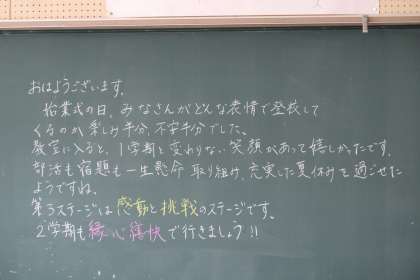 おはようございます。
始業式の日、みなさんがどんな表情で登校して
くるのか楽しみ半分、不安半分でした。
教室に入ると、1学期と変わりない笑顔があって嬉しかったです。
部活も宿題も一生懸命取り組み、充実した夏休みを過ごせた
ようですね。
第3ステージは感動と挑戦のステージです。
2学期も 心痛快で行きましょう!!